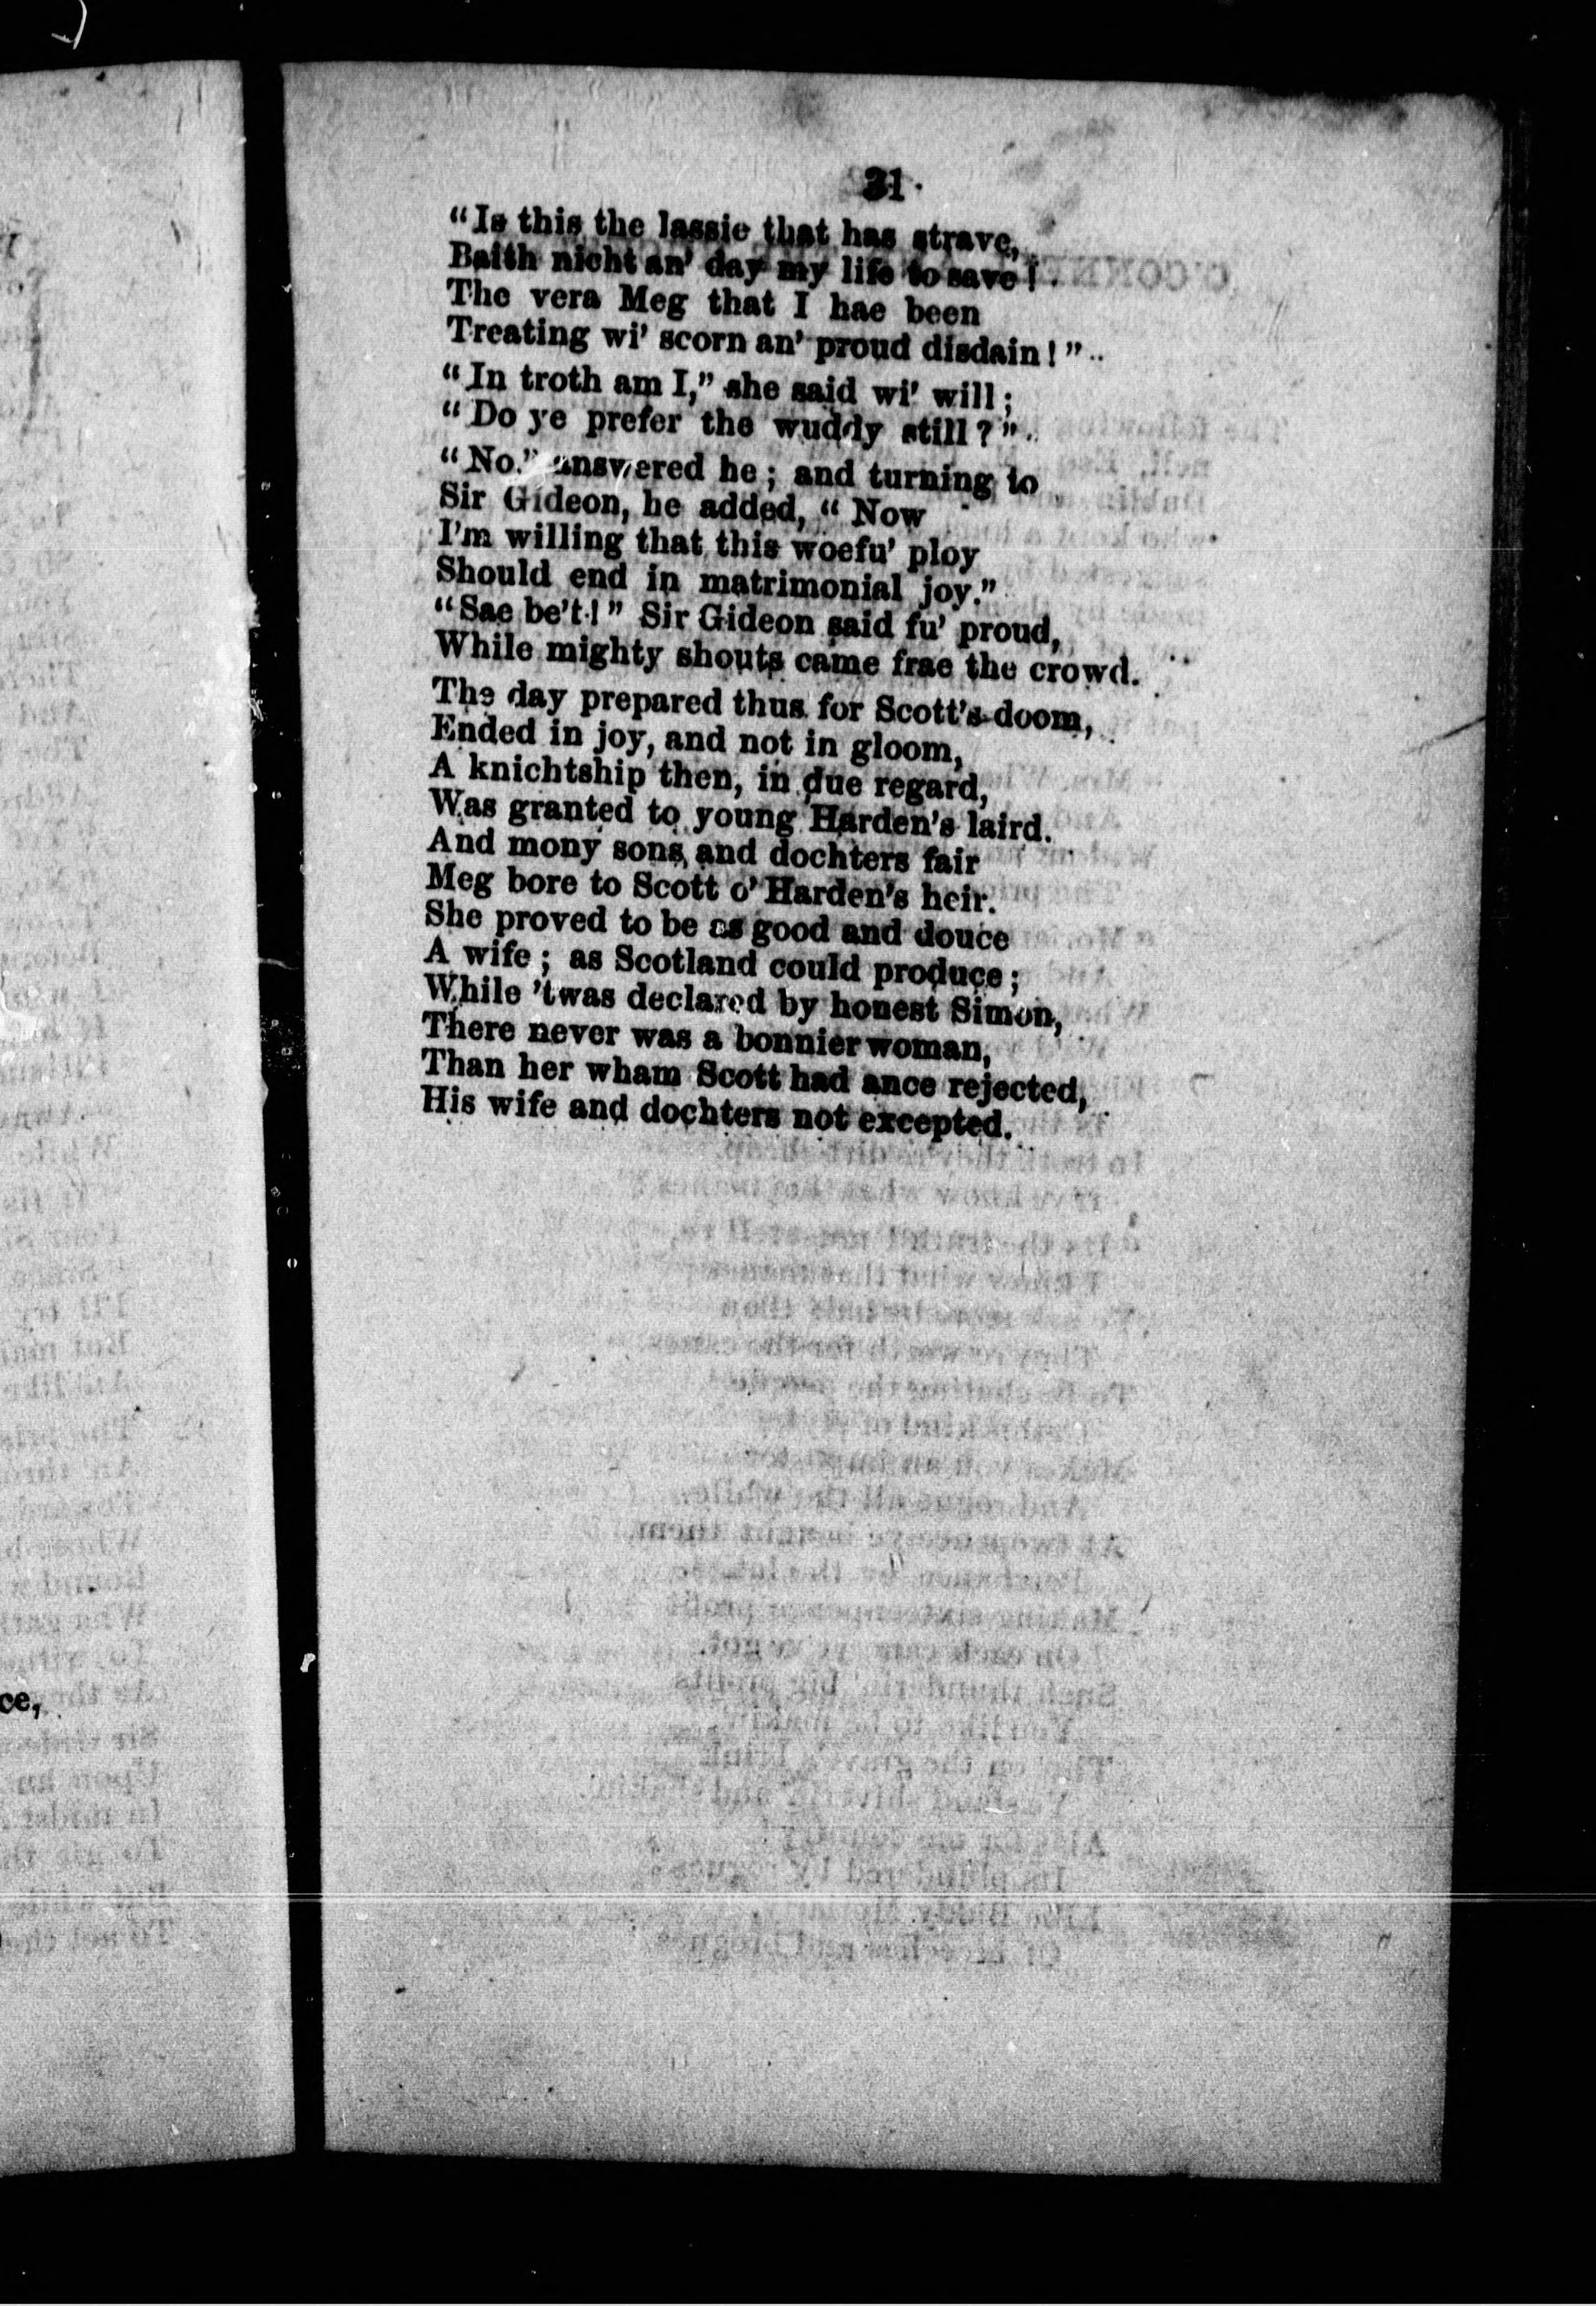 31
“Is this the lassie that has strave,
Baith nicht an' day my life to save!
The vera Meg that I hae been
Treating wi' scorn an' proud disdain!”
“In troth am I,” she said wi' will;
“Do ye prefer the wuddy still?”
“No.” answered he; and turning to
Sir Gideon, he added, “Now
I'm willing that this woefu' ploy
Should end in matrimonial joy.”
“Sae be't!” Sir Gideon said fu' proud,
While mighty shouts came frae the crowd.
The day prepared thus for Scott's doom,
Ended in joy, and not in gloom,
A knichtship then, in due regard,
Was granted to young Harden's laird.
And mony sons, and dochters fair
Meg bore to Scott o' Harden's heir.
She proved to be as good and douce
A wife; as Scotland could produce;
While 'twas declared by honest Simon,
There never was a bonnier woman,
Than her wham Scott had ance rejected,
His wife and dochters not excepted.
ce,